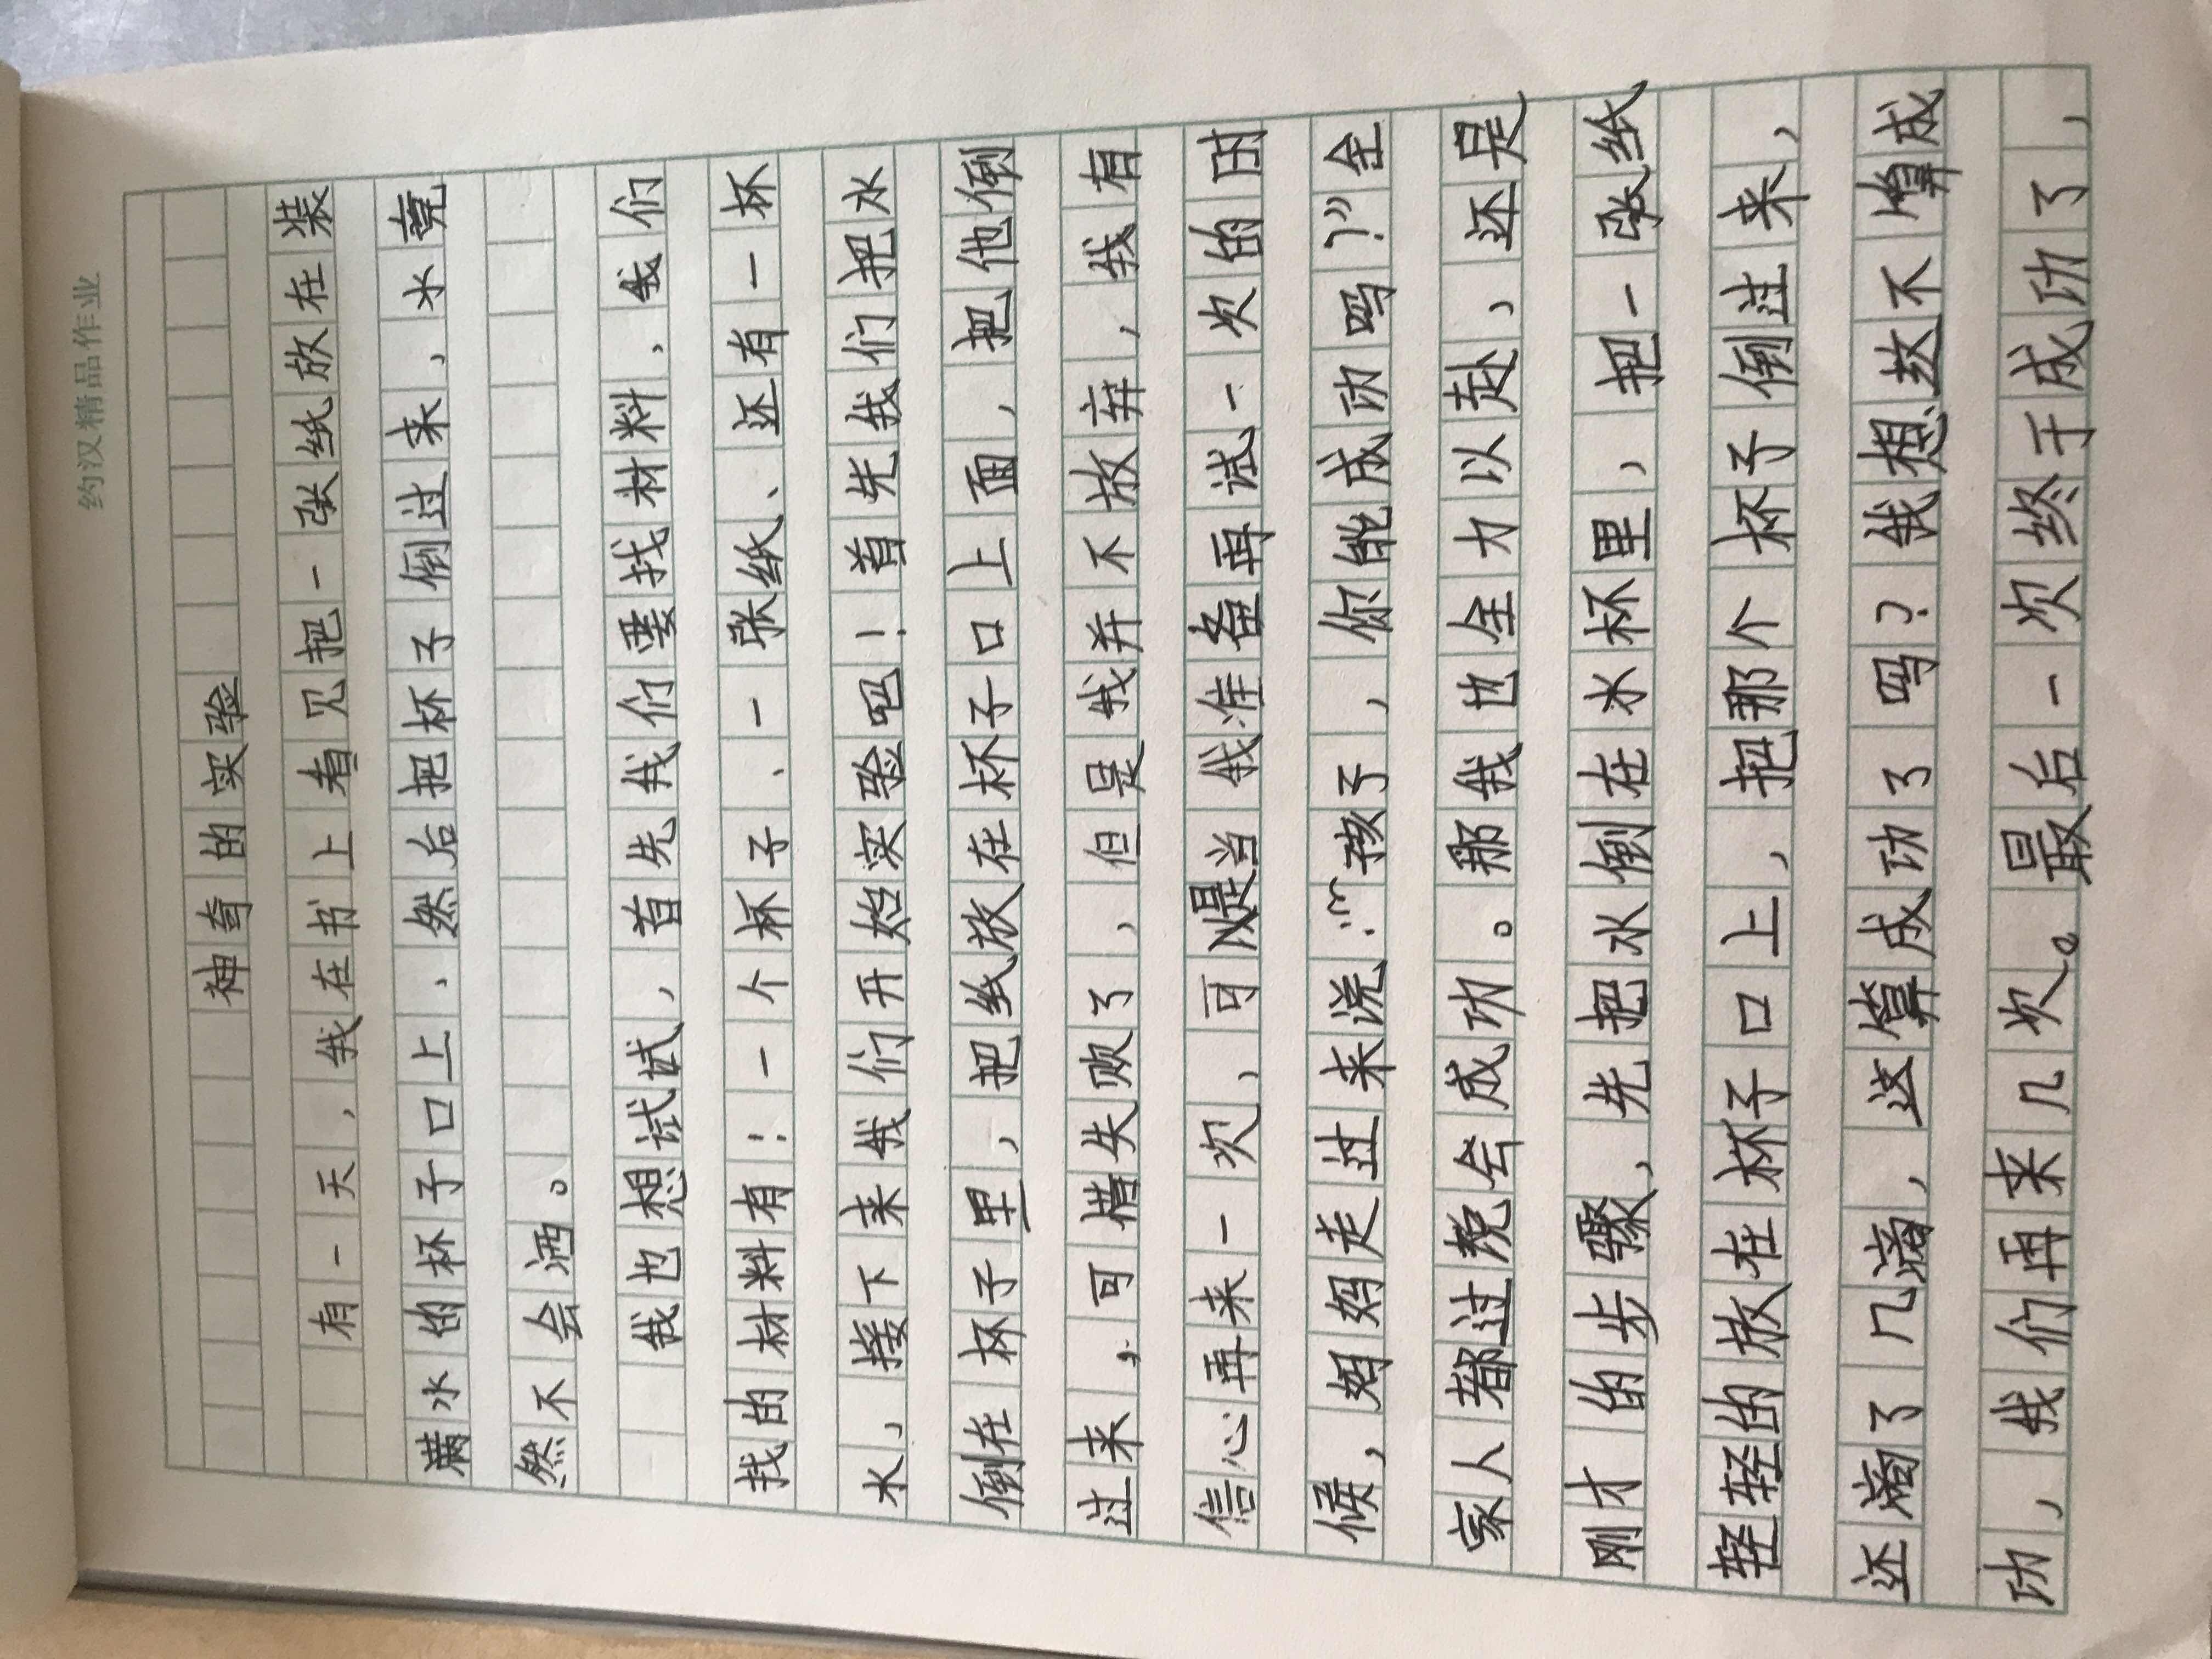 约汉精品作业
神奇的实验
有一天，我在书上看见把一张纸放在装
满水的杯子口上，然后把杯子倒过来，水竟
然不会洒。
我也想试试，首先我们要找材料，我们
找的材料有：一个杯子、一张纸、还有一杯
水，接下来我们开始实验吧！首先我们把水
倒在杯子里，把纸放在杯子口上面，把他倒
过来，可惜失败了，但是我并不放弃，我有
信心再来一次，可是当我准备再试一次的时
候，妈妈走过来说：“孩子，你能成功吗？”全
家人都过说会成功。那我也全力以赴，还是
刚才的步骤，先把水倒在水杯里，把一张纸
轻轻的放在杯子口上，把那个杯子倒过来，
还滴了几滴，这算成功了吗？我想这不算成
功，我们再来几次。最后一次终于成功了，